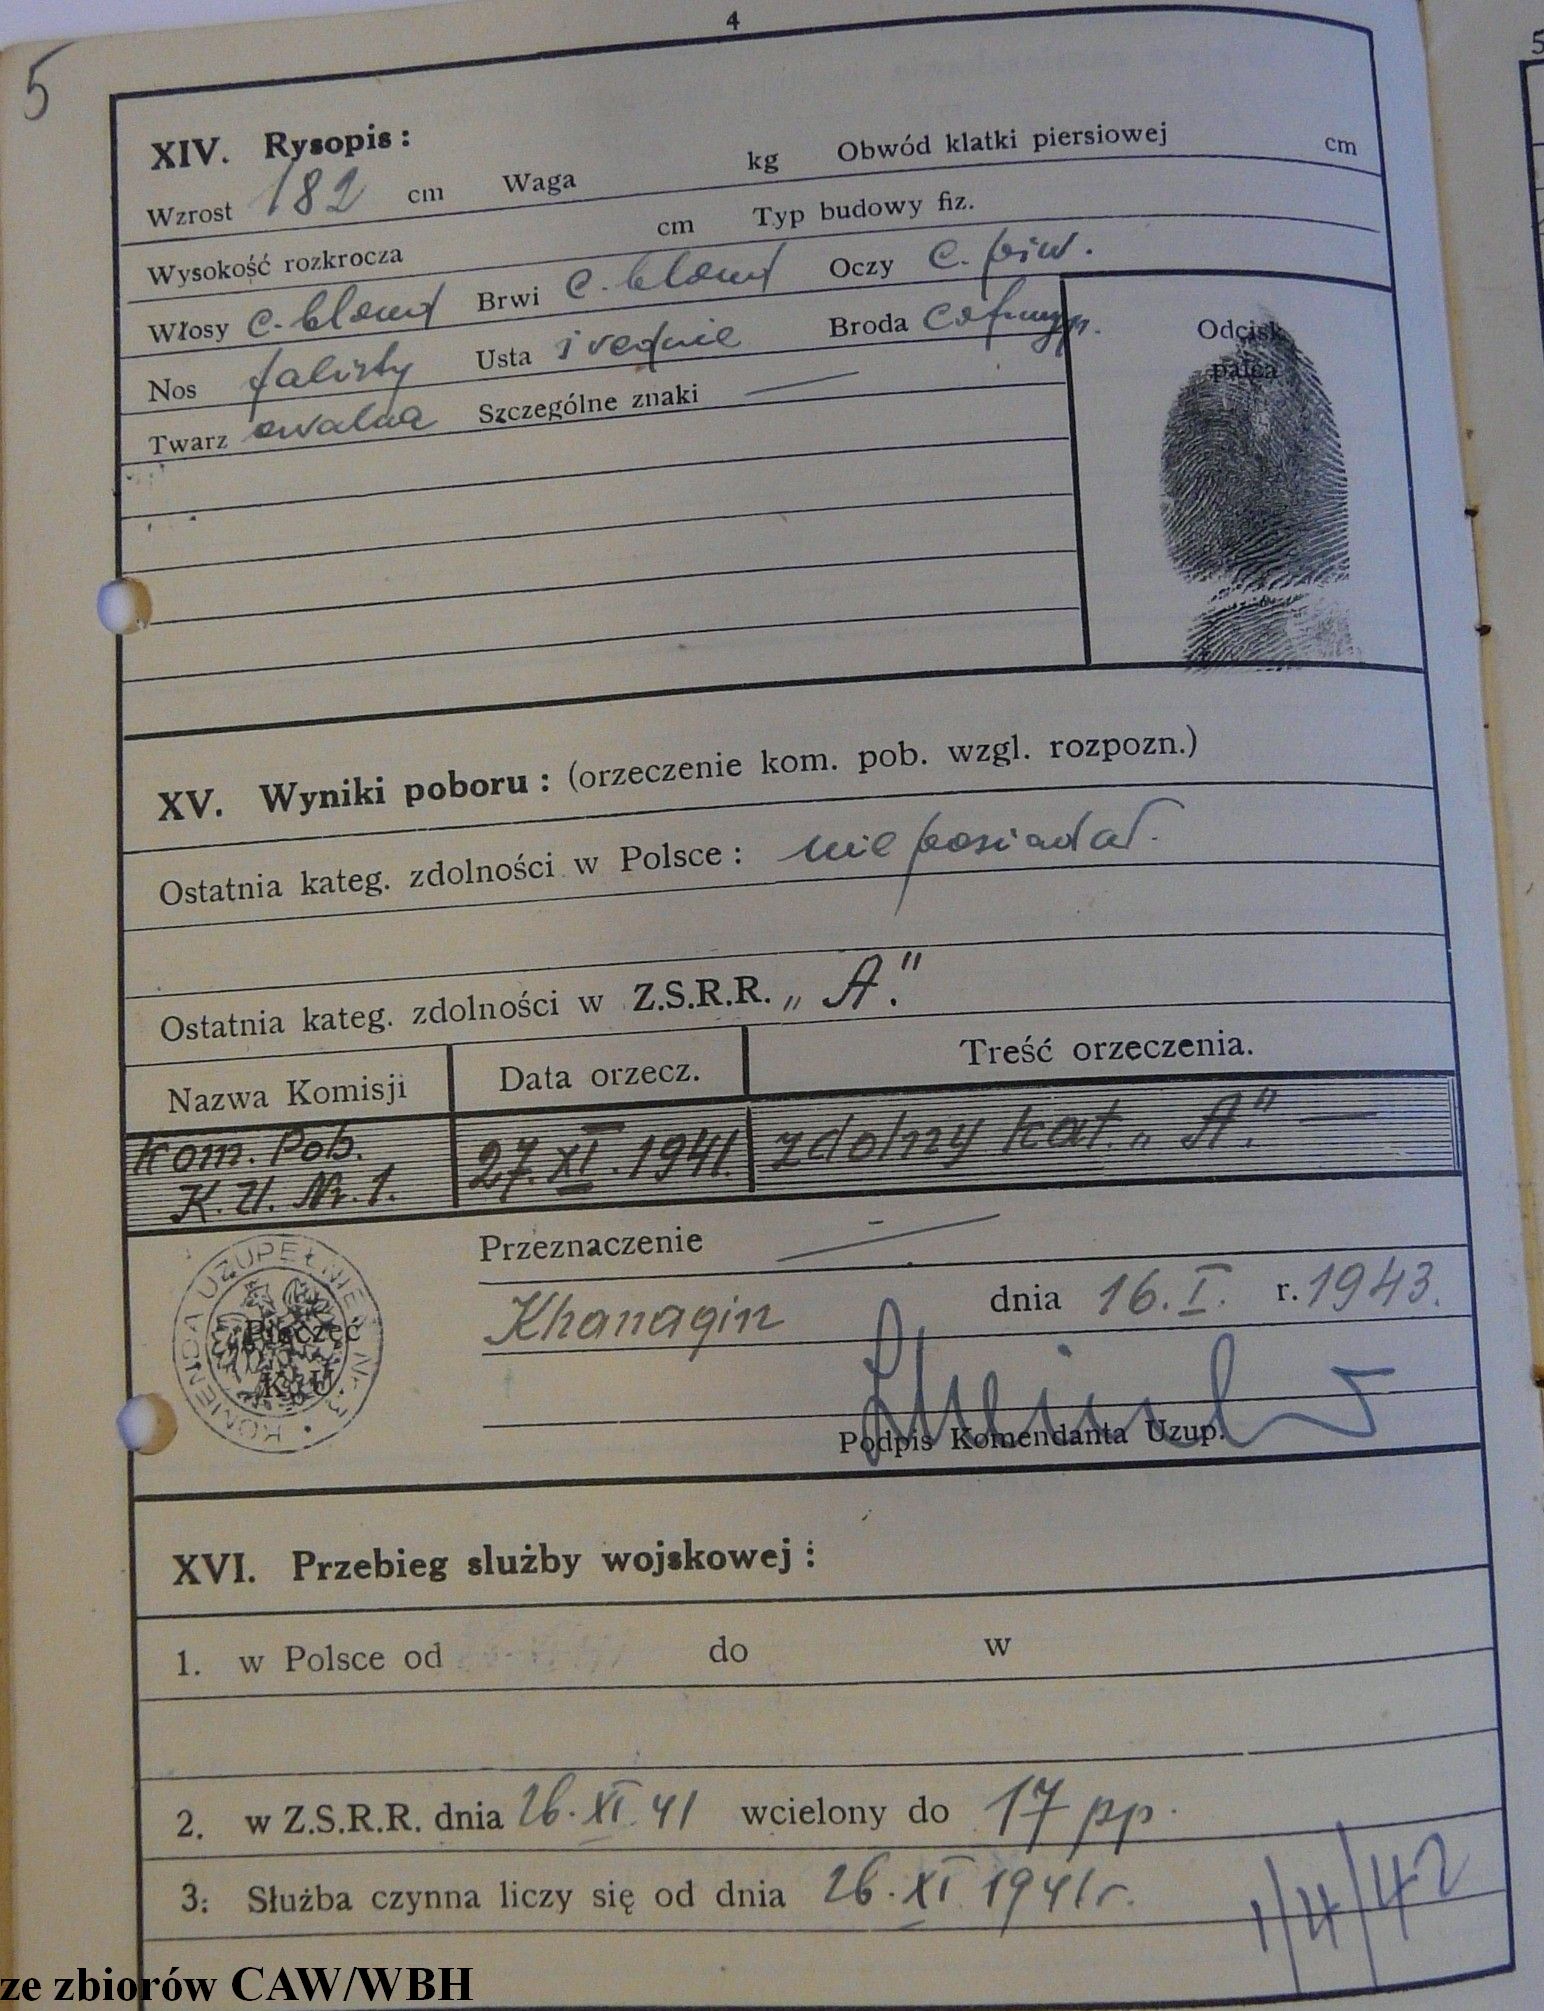 4
5
XIV. Rysopis:
Wzrost 182 cm Waga kg Obwód klatki piersiowej cm
Wysokość rozkrocza cm Typ budowy fiz.
Włosy c. blond Brwi c. blond Oczy c. piw.
Nos falisty Usta średnie Broda
Twarz owalna Szczególne znaki —
Odcisk
palca
XV. Wyniki poboru: (orzeczenie kom. pob. wzgl. rozpozn.)
Ostatnia kateg. zdolności w Polsce: nie posiadał.
Ostatnia kateg. zdolności w Z.S.R.R. „A."
Nazwa Komisji Data orzecz. Treść orzeczenia.
Kom. Pob. K. U. Nr. 1. 27.XI.1941. zdolny kat. „A." —
Przeznaczenie —
Khanaqin dnia 16.I. r. 1943.
KOMENDA UZUPEŁNIEŃ Nr. 3
Pieczęć
K. U.
Podpis Komendanta Uzup.
XVI. Przebieg służby wojskowej:
1. w Polsce od do w
2. w Z.S.R.R. dnia 26.XI.41 wcielony do 17 pp.
3. Służba czynna liczy się od dnia 26.XI 1941 r.
1/4/42
5
ze zbiorów CAW/WBH